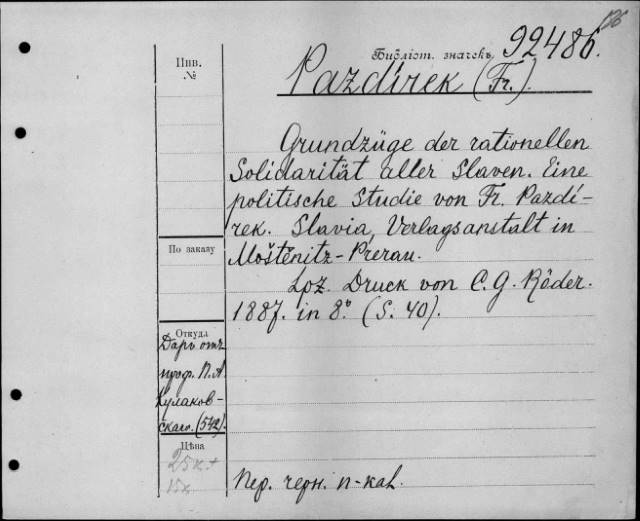 126
Библіот. значекъ 92486.
Инв.
№
Pazdírek (Fr.)
Grundzüge der rationellen
Solidarität aller Slaven. Eine
politische Studie von Fr. Pazdí-
rek. Slavia, Verlagsanstalt in
Moštěnitz-Prerau.
Lpz. Druck von C. G. Röder.
1887. in 8º. (S. 40).
По заказу
Откуда
Даръ отъ
проф. П. А.
Кулаков-
скаго. (542).
Цѣна
25к+
15к
Пер. черн. п-каl.